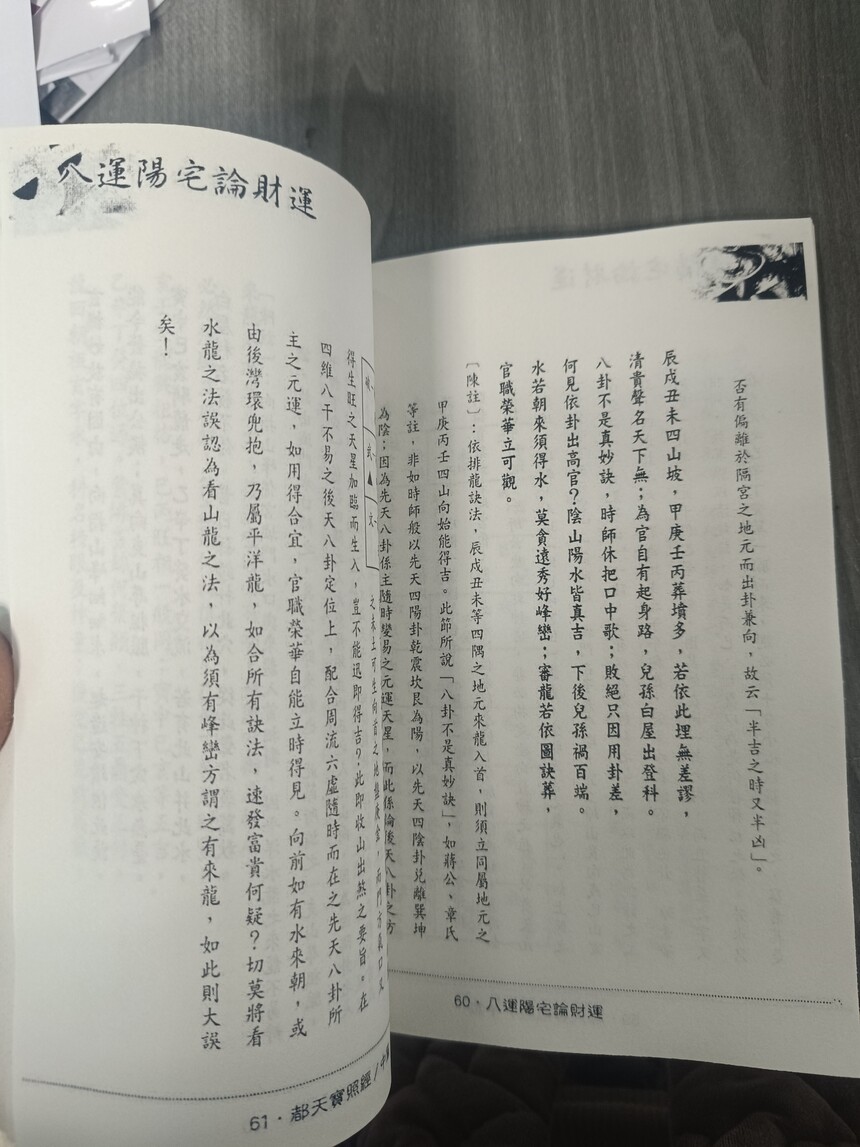 否有偏離於隔宮之地元而出卦兼向，故云「半吉之時又半凶」。
辰戌丑未四山坡，甲庚壬丙葬墳多，若依此埋無差謬，
清貴聲名天下無；為官自有起身路，兒孫白屋出登科。
八卦不是真妙訣，時師休把口中歌；敗絕只因用卦差，
何見依卦出高官？陰山陽水皆真吉，下後兒孫禍百端。
水若朝來須得水，莫貪遠秀好峰巒；審龍若依圖訣葬，
官職榮華立可觀。
〔陳註〕：依排龍訣法，辰戌丑未等四隅之地元來龍入首，則須立同屬地元之
甲庚丙壬四山向始能得吉。此節所說「八卦不是真妙訣」，如蔣公、章氏
等註，非如時師般以先天四陽卦乾震坎艮為陽，以先天四陰卦兌離巽坤
為陰；因為先天八卦係主隨時變易之元運天星，而此係論後天八卦之方
60·八運陽宅論財運
八運陽宅論財運
得生旺之天星加臨而生入，豈不能迅即得吉？此即收山出煞之要旨。在
四維八干不易之後天八卦定位上，配合周流六虛隨時而在之先天八卦所
主之元運，如用得合宜，官職榮華自能立時得見。向前如有水來朝，或
由後灣環兜抱，乃屬平洋龍，如合所有訣法，速發富貴何疑？切莫將看
水龍之法誤認為看山龍之法，以為須有峰巒方謂之有來龍，如此則大誤
矣！
61·都天寶照經/中